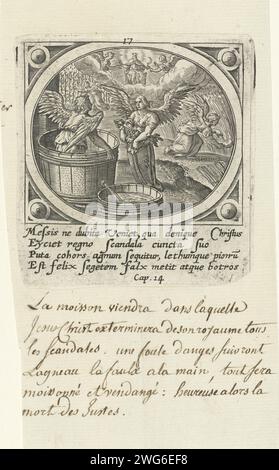 17
Messis ne dubita Veniet, qua denique Christus
Eyciet regno scandala cuncta suo
Puta cohors agnum sequitur, lethumque piorum
Est felix segetem falx metit atque botros
Cap. 14
La moisson viendra dans laquelle
Jesus Christ exterminera de son royaume tous
les scandales. une foule d'anges suivront
Lagneau la faulx a la main, tout sera
moissonné et vendangé : heureuse alors la
mort des Justes.
alamy
Image ID: 2WG6EF8
www.alamy.com